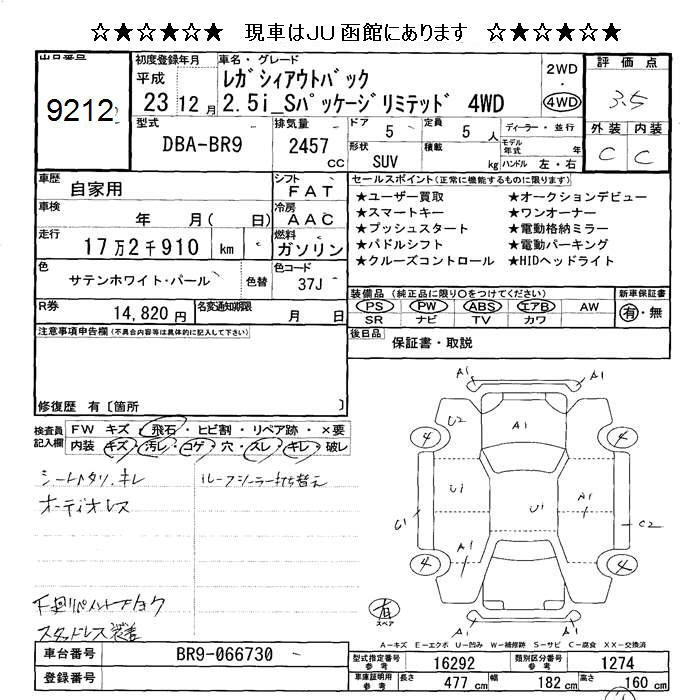 ☆★☆★☆★ 現車はJU函館にあります ☆★☆★☆★
出品番号
9212
初度登録年月
平成
23 12月
車名・グレード
レガシィアウトバック
2.5i_Sパッケージリミテッド 4WD
2WD
4WD
評価点
3.5
外装 内装
C C
型式
DBA-BR9
排気量
2457 cc
ドア 5
定員 5 人
形状 SUV
積載 kg
ディーラー・並行
モデル年式 年
ハンドル 左・右
車歴 自家用
シフト FAT
車検 年 月( 日)
冷房 AAC
走行 17万2千910 km
燃料 ガソリン
色 サテンホワイト・パール
色替
色コード 37J
R券 14,820 円
名変通知期限 月 日
セールスポイント(正常に機能するものに限ります)
★ユーザー買取 ★オークションデビュー
★スマートキー ★ワンオーナー
★プッシュスタート ★電動格納ミラー
★パドルシフト ★電動パーキング
★クルーズコントロール ★HIDヘッドライト
装備品(純正品に限り○をつけてください)
PS PW ABS エアB AW
SR ナビ TV カワ
新車保証書
有・無
後日品 保証書・取説
注意事項申告欄(不具合内容等は具体的に記入して下さい)
修復歴 有〔箇所 〕
検査員記入欄
FW キズ・飛石・ヒビ割・リペア跡・×要
内装 キズ・汚レ・コゲ・穴・スレ・キレ・破レ
シートヘタリ、キレ
ルーフシーラー打ち替え
オーディオレス
下廻リペイント
スタッドレス装着
A1 A1
U2 A1
4 4
U1 U1 A1
U1 C2
A1
4 4
有
スペア
A1 A1
A-キズ E-エクボ U-凹み W-補修跡 S-サビ C-腐食 XX-交換済
車台番号 BR9-066730
登録番号
型式指定番号 参考 16292
類別区分番号 参考 1274
車庫証明用 参考 長さ 477 cm 幅 182 cm 高さ 160 cm